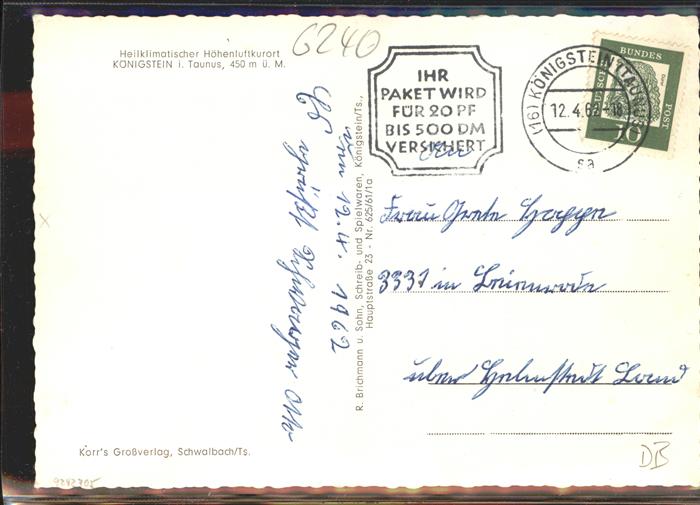 Heilklimatischer Höhenluftkurort
KÖNIGSTEIN i. Taunus, 450 m ü. M.
6240
IHR
PAKET WIRD
FÜR 20 PF
BIS 500 DM
VERSICHERT
(16) KÖNIGSTEIN (TAUNUS)
12.4.62-18
sa
BUNDES
POST
10
den 12.4.1962
Es grüßt Schwager Otto
R. Brichmann u. Sohn, Schreib- und Spielwaren, Königstein/Ts.,
Hauptstraße 23 - Nr. 625/61/1a
Frau Grete
3331 in
über Helmstedt Land
Korr's Großverlag, Schwalbach/Ts.
DB